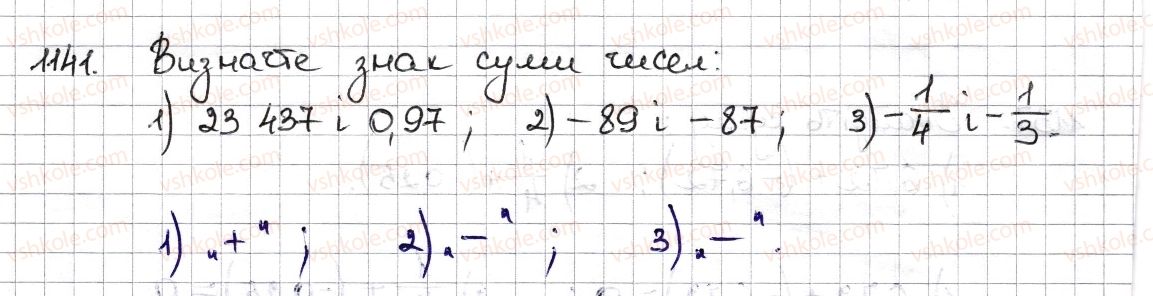 1141. Визначте знак суми чисел:
1) 23 437 і 0,97 ; 2) −89 і −87 ; 3) −1/4 і −1/3.
1) „+" ; 2) „−" ; 3) „−".